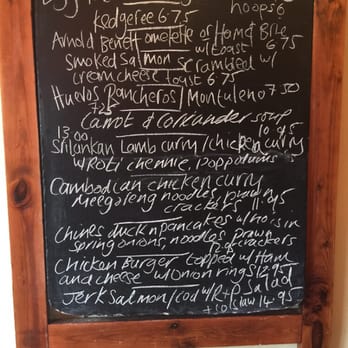 hoops 6
Kedgeree 6.75
Arnold Benett omelette or Ham & Brie
w/toast 6.75
Smoked Salmon scrambled w/
creamcheese toast 6.75
Huevos Rancheros/Montuleno 7.50
7.25
Carrot & Coriander soup
13.00 10.95
Srilankan Lamb curry/chicken curry
w/Roti chennie, Poppodoms
Cambodian chicken curry
Meegoreng noodles prawn
crackers 11.95
Chines duck n pancakes w/hoisin
spring onions, noodles prawn
crackers
Chicken Burger topped w/Ham
and cheese w/onion rings 12.95
Jerk Salmon/cod w/R+P Salad
slaw 14.95